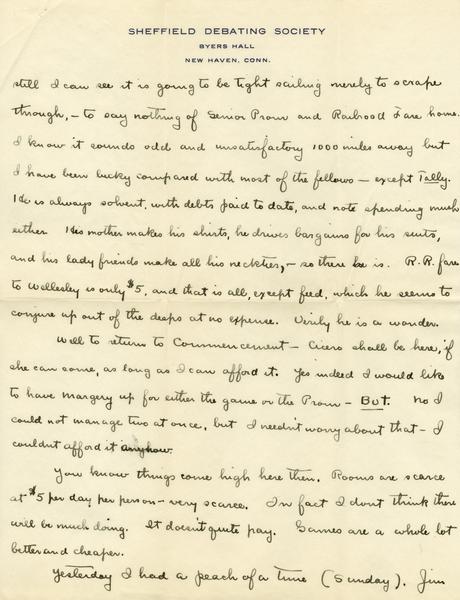 SHEFFIELD DEBATING SOCIETY
BYERS HALL
NEW HAVEN, CONN.
still I can see it is going to be tight sailing merely to scrape
through, - to say nothing of Senior Prom and Railroad Fare home.
I know it sounds odd and unsatisfactory 1000 miles away but
I have been lucky compared with most of the fellows - except Tally.
He is always solvent, with debts paid to date, and note spending much
either. His mother makes his shirts, he drives bargains for his suits,
and his lady friends make all his neckties, - so there he is. R.R. fare
to Wellesley is only $5, and that is all, except feed, which he seems to
conjure up out of the deeps at no expense. Verily he is a wonder.
Well to return to Commencement - Cicero shall be here, if
she can come, as long as I can afford it. Yes indeed I would like
to have Margery up for either the game or the Prom - But. No I
could not manage two at once, but I needn't worry about that - I
couldn't afford it anyhow.
You know things come high here then. Rooms are scarce
at $5 per day per person - very scarce. In fact I dont think there
will be much doing. It doesn't quite pay. Games are a whole lot
better and cheaper.
Yesterday I had a peach of a time (Sunday). Jim